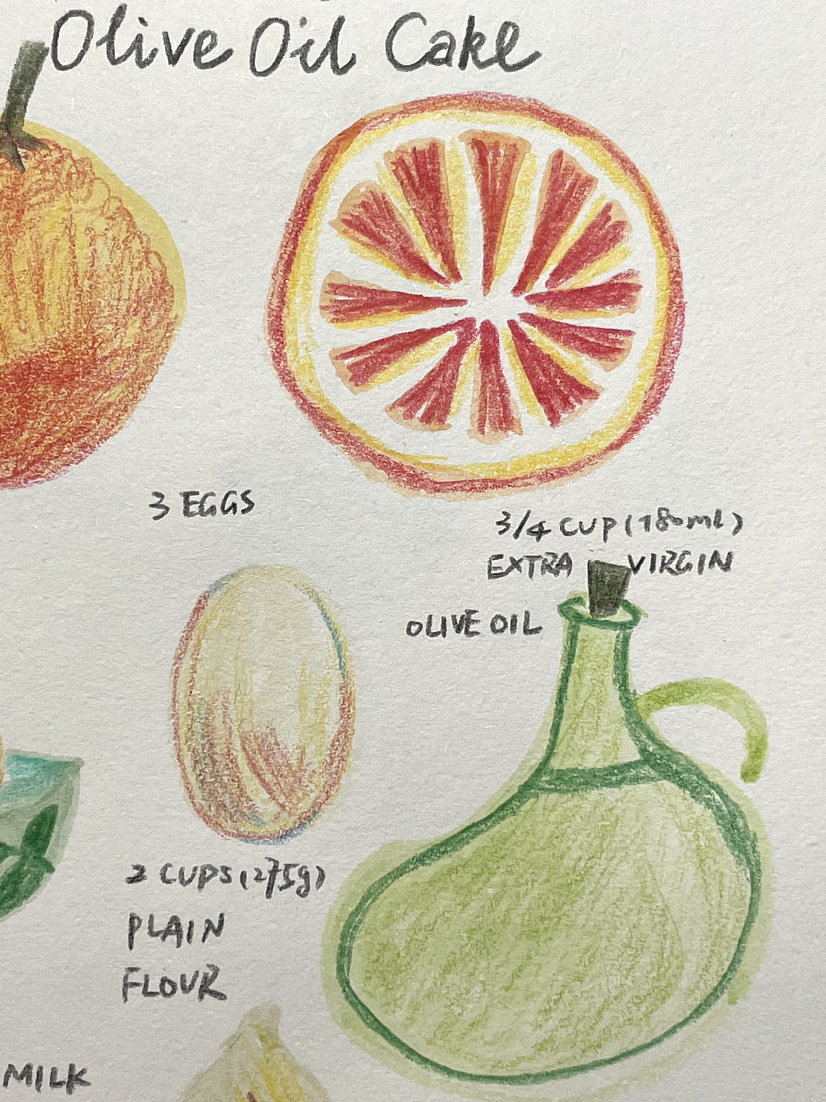 Olive Oil Cake
3 EGGS
3/4 CUP (180ml)
EXTRA VIRGIN
OLIVE OIL
2 CUPS (275g)
PLAIN
FLOUR
MILK